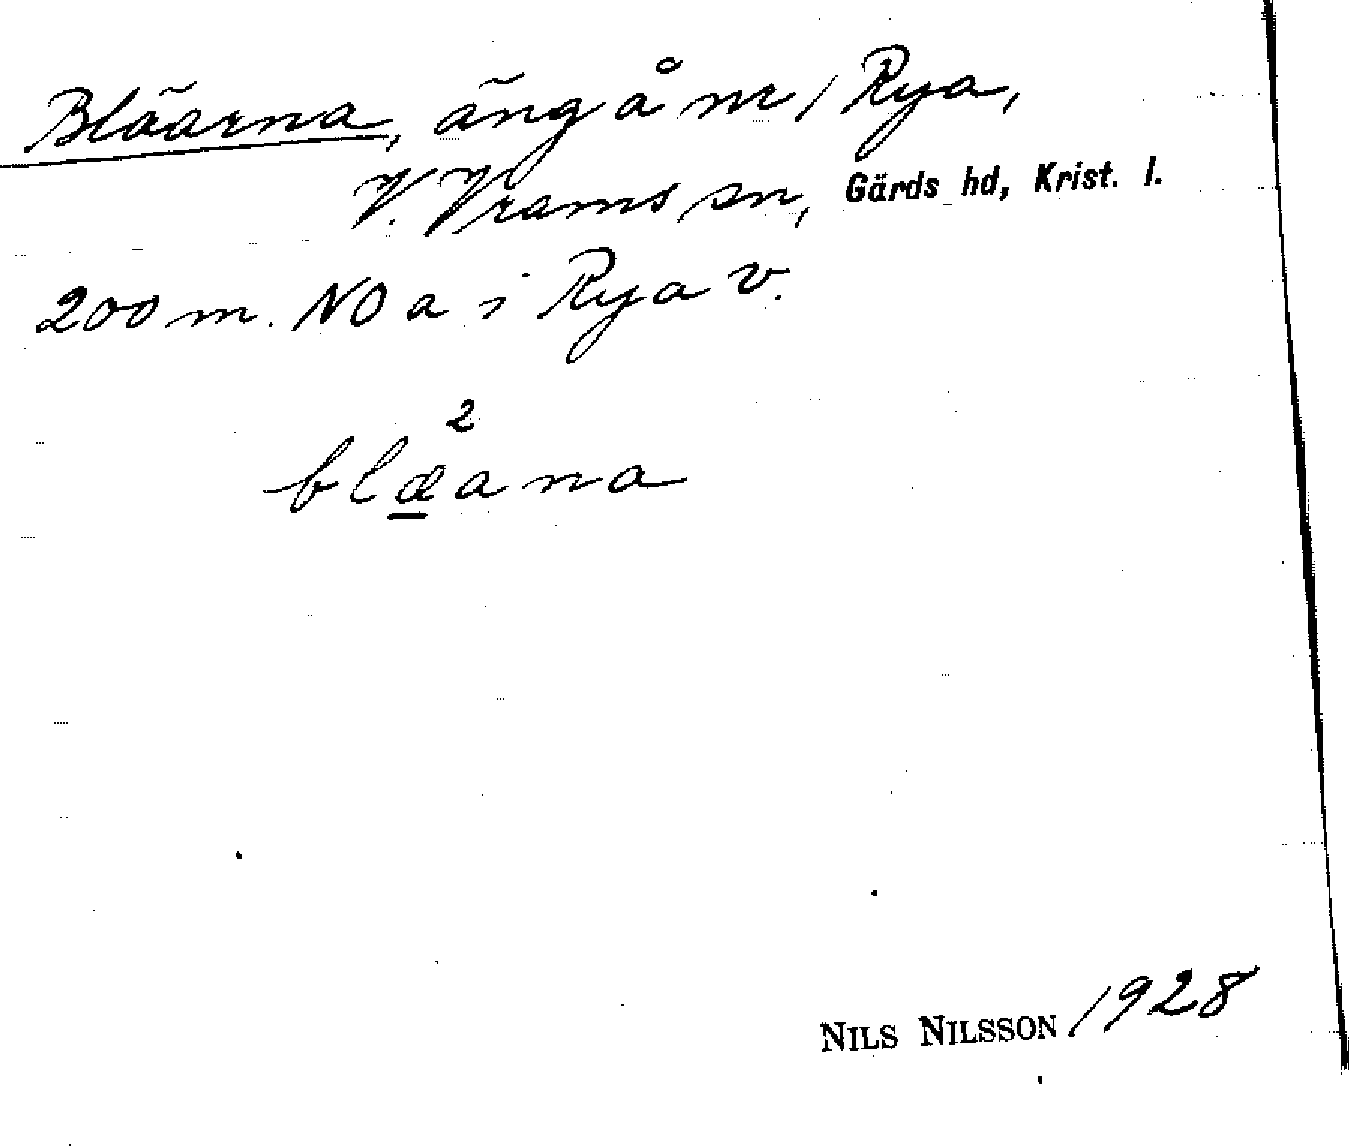 Bläarna, äng å nr 1 Rya,
V. Vrams sn, Gärds hd, Krist. l.
200 m. NO a i Rya v.
2
blæana
NILS NILSSON 1928